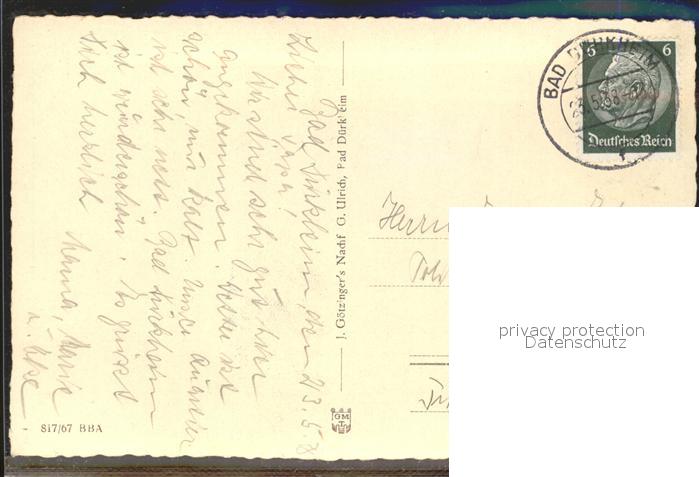 Bad Dürkheim, den 23.5.38
Liebe Papa!
Wir sind sehr gut hier
angekommen. Wetter ist
schön nur kalt. Unser Quartier
ist sehr nett. Bad Dürkheim
ist wunderschön. Es grüsst
Dich herzlich Mama, Marie
u. Ilse.
J. Götzinger's Nachf G. Ulrich, Bad Dürkheim
GM
817/67 BBA
BAD DÜRKHEIM
23.5.38
6 6
Deutsches Reich
Herrn
privacy protection
Datenschutz